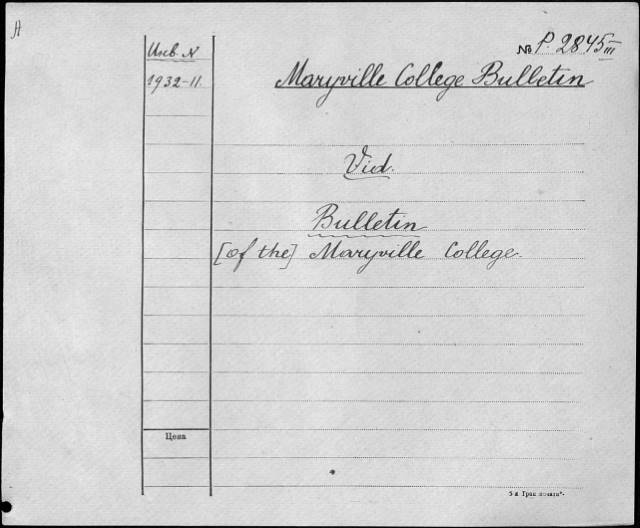 A
Инв. N
№ P. 2845 III
1932-11.
Maryville College Bulletin
Vid.
Bulletin
[of the] Maryville College.
Цена